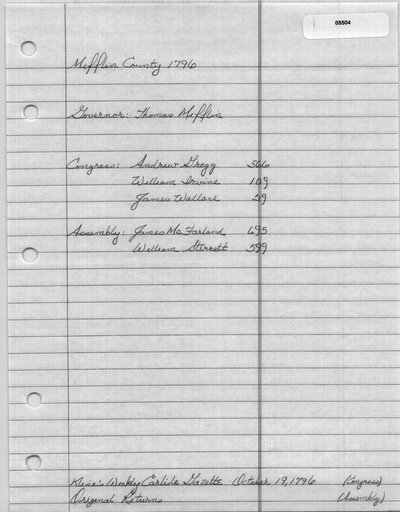 05504
Mifflin County 1796
Governor: Thomas Mifflin
Congress: Andrew Gregg 566
William Irvine 109
James Wallace 59
Assembly: James McFarland 695
William Sterrett 599
Kline's Weekly Carlisle Gazette, October 19, 1796 (Congress)
Original Returns (Assembly)